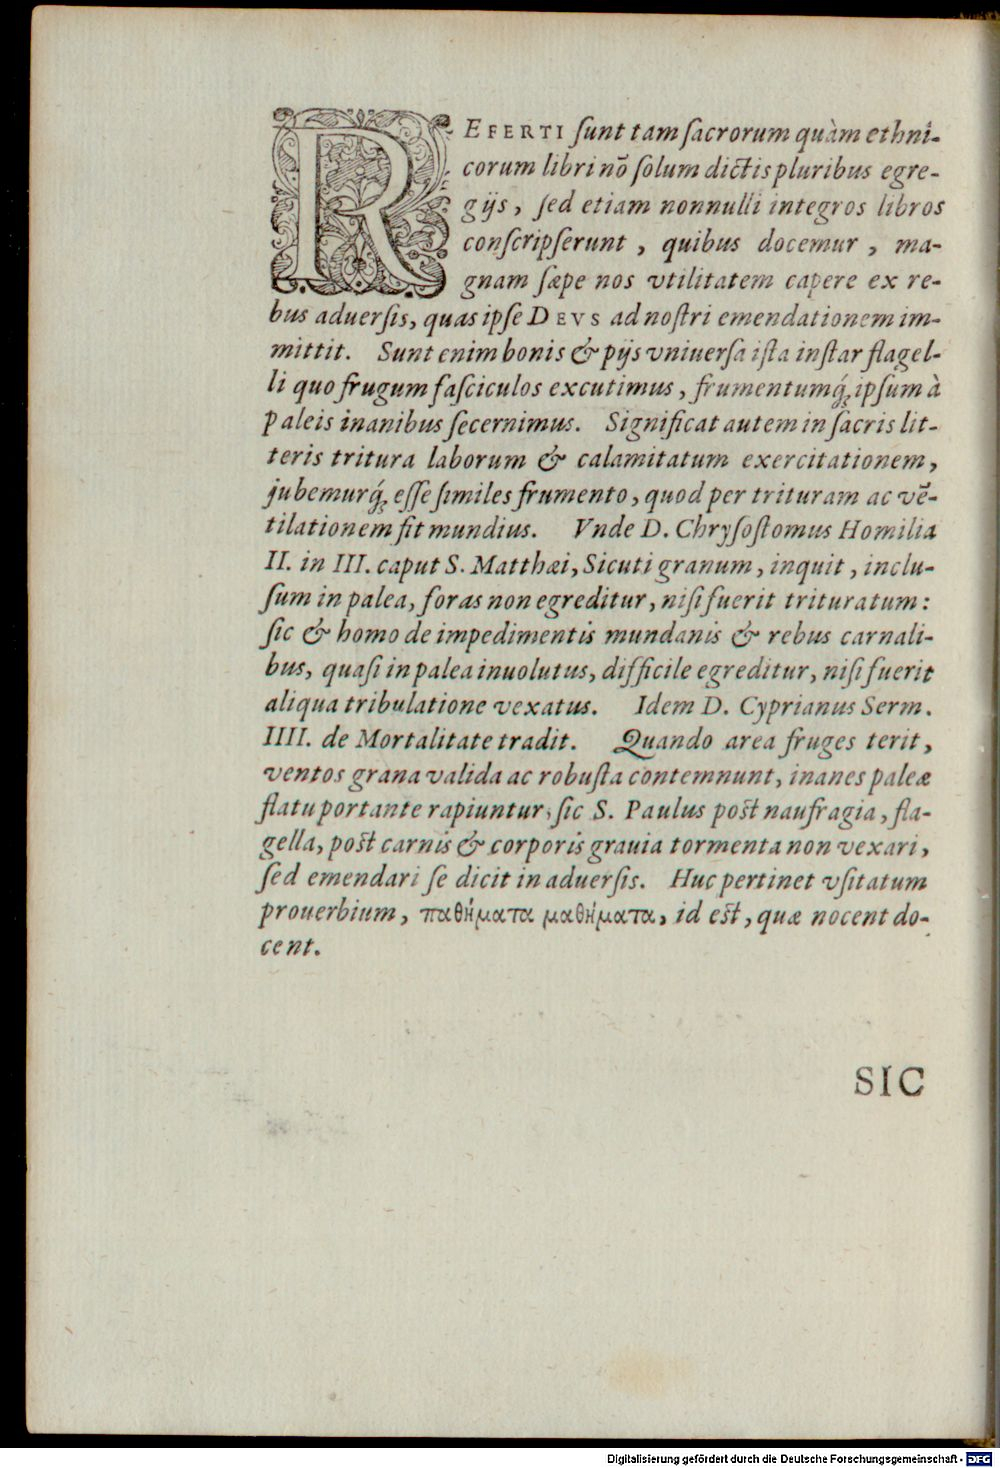 REFERTI ſunt tam ſacrorum quàm ethni-
corum libri nõ ſolum dictis pluribus egre-
gijs, ſed etiam nonnulli integros libros
conſcripſerunt, quibus docemur, ma-
gnam ſæpe nos vtilitatem capere ex re-
bus aduerſis, quas ipſe DEVS ad noſtri emendationem im-
mittit. Sunt enim bonis & pijs vniuerſa iſta inſtar flagel-
li quo frugum faſciculos excutimus, frumentumq́; ipſum à
paleis inanibus ſecernimus. Significat autem in ſacris lit-
teris tritura laborum & calamitatum exercitationem,
jubemurq́; eſſe ſimiles frumento, quod per trituram ac vẽ-
tilationem fit mundius. Vnde D. Chryſoſtomus Homilia
II. in III. caput S. Matthæi, Sicuti granum, inquit, inclu-
ſum in palea, foras non egreditur, niſi fuerit trituratum:
ſic & homo de impedimentis mundanis & rebus carnali-
bus, quaſi in palea inuolutus, difficile egreditur, niſi fuerit
aliqua tribulatione vexatus. Idem D. Cyprianus Serm.
IIII. de Mortalitate tradit. Quando area fruges terit,
ventos grana valida ac robuſta contemnunt, inanes paleæ
flatu portante rapiuntur, ſic S. Paulus poſt naufragia, fla-
gella, poſt carnis & corporis grauia tormenta non vexari,
ſed emendari ſe dicit in aduerſis. Huc pertinet vſitatum
prouerbium, παθήματα μαθήματα, id eſt, quæ nocent do-
cent.
SIC
Digitalisierung gefördert durch die Deutsche Forschungsgemeinschaft - DFG